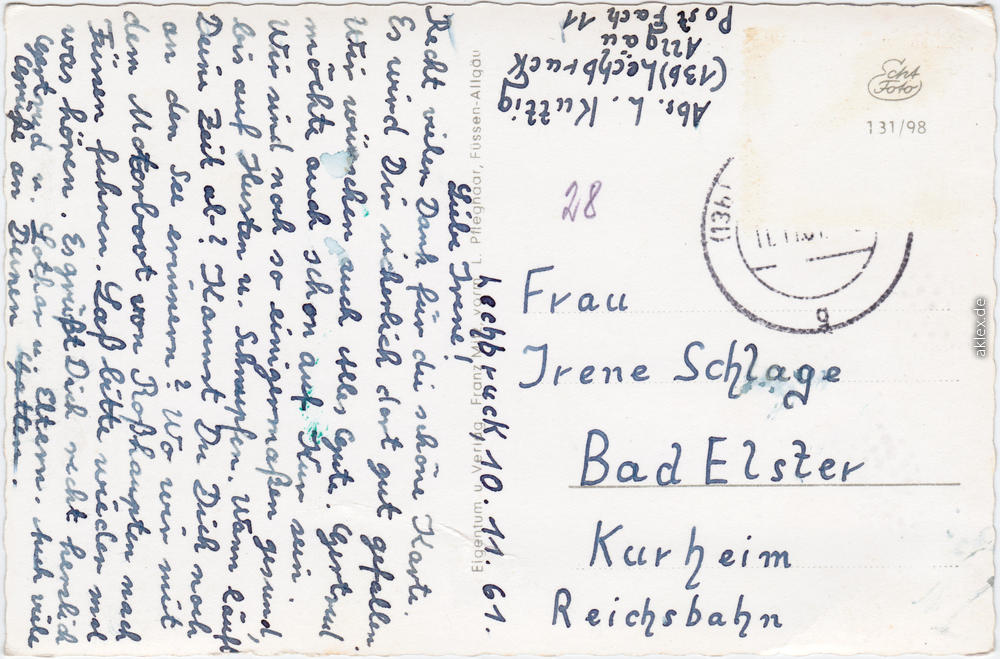 Lechbruck, 10. 11. 61.
Liebe Irene!
Recht vielen Dank für die schöne Karte.
Es wird Dir sicherlich dort gut gefallen.
Wir wünschen auch Alles Gute. Gertrud
möchte auch schon auf Kur sein.
Wir sind noch so einigermaßen gesund,
bis auf Husten u. Schnupfen. Wann läuft
Deine Zeit ab? Kannst Du Dich noch
an den See erinnern? Wo wir mit
dem Motorboot von Roßhaupten nach
Füssen fuhren. Laß bitte wieder mal
was hören. Es grüßt Dich recht herzlich
Gertrud u. Lothar u. Eltern. Auch viele
Grüße an Deinen Gatten.
Eigentum u. Verlag, Franz Milz vorm. L. Pfleghaar, Füssen-Allgäu
Abs. L. Kuttig
(13b) Lechbruck
Allgäu
Post Fach 11
Echt
Foto
131/98
28
(13b)
11.11.61
a
Frau
Irene Schlage
Bad Elster
Kurheim
Reichsbahn
aklex.de